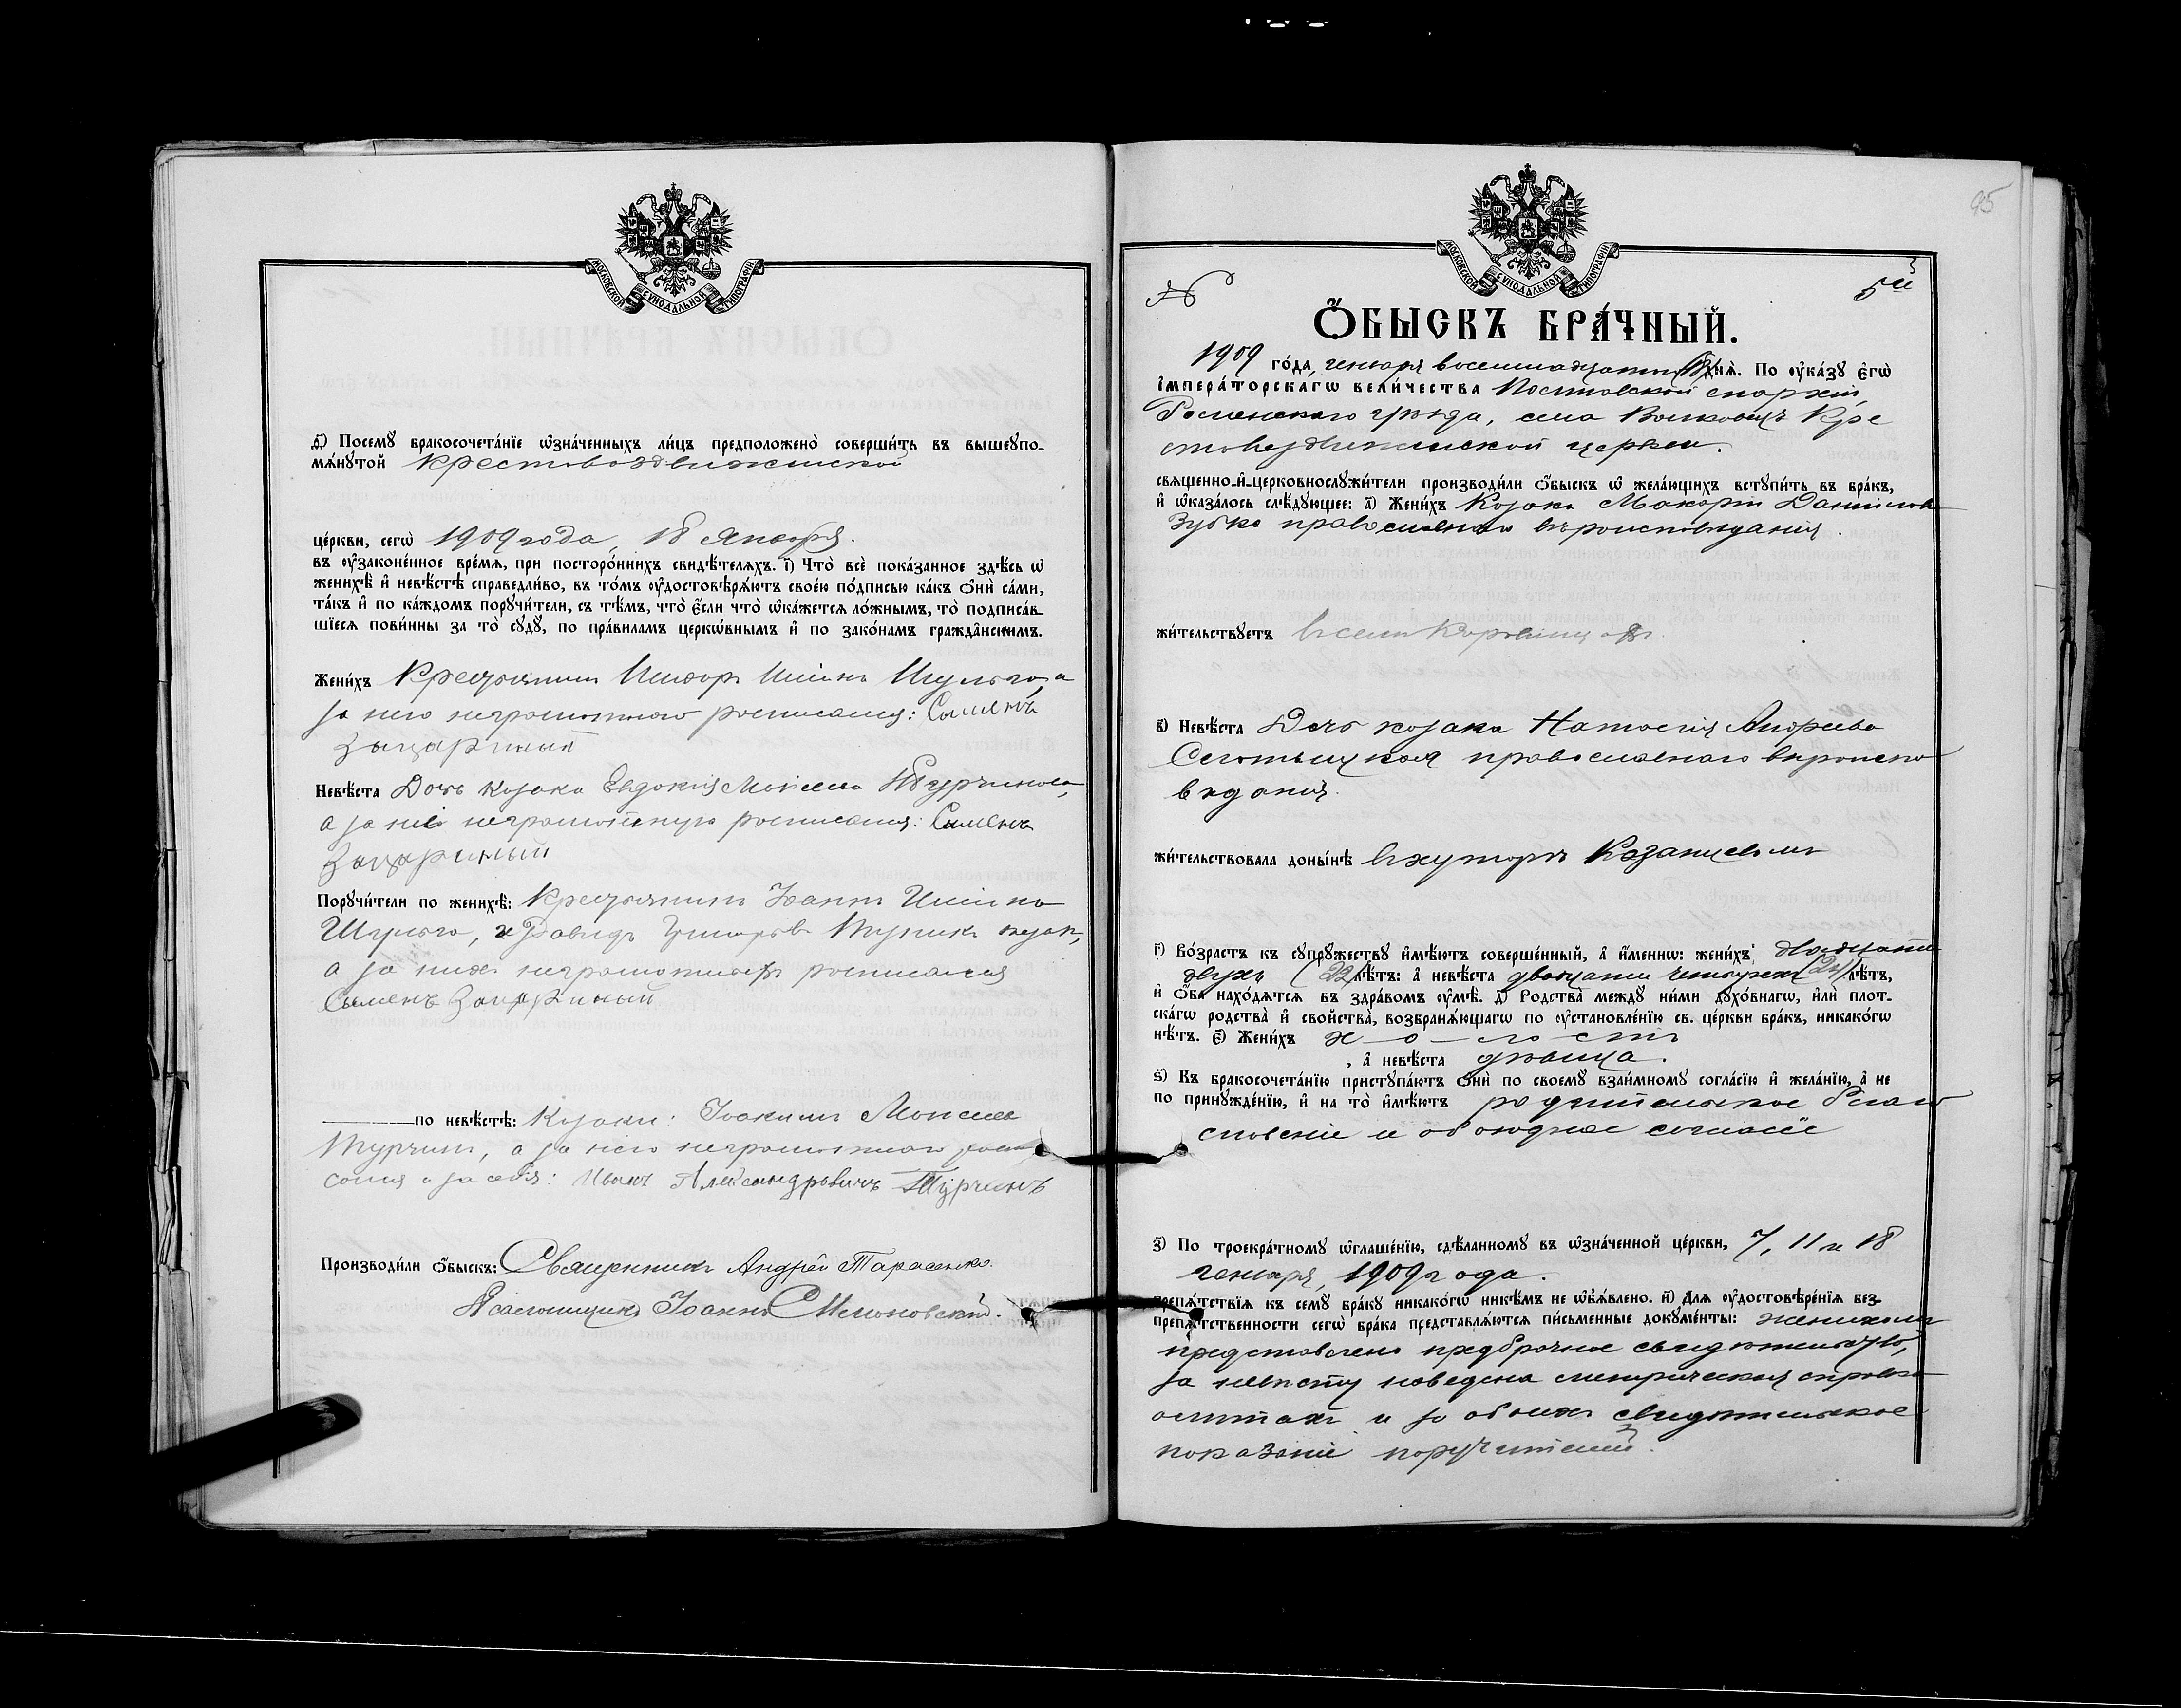 МОСКОВСКОЙ СѴНОДАЛЬНОЙ ТИПОГРАФІИ
ѳ҃) Посемꙋ̀ бракосочета́нїе ѡ҆зна́ченныхъ ли́цъ предположено̀ соверши́ть въ вышеꙋпо-
мѧ́нꙋтой Крестовоздвиженской
це́ркви, сегѡ̀ 1909 года, 18 Января.
въ ᲂу҆законе́нное вре́мѧ, при посторо́ннихъ свидѣ́телѧхъ. і҃) Что̀ всѐ пока́занное здѣ́сь ѡ҆
женихѣ̀ и҆ невѣ́стѣ справедли́во, въ то́мъ ᲂу҆достовѣрѧ́ютъ свое́ю по́дписью ка́къ ѻ҆нѝ са́ми,
та́къ и҆ по ка́ждомъ порꙋчи́тели, съ тѣ́мъ, что̀ є҆́сли что̀ ѡ҆ка́жетсѧ ло́жнымъ, то̀ подписа́в-
шїесѧ пови́нны за то̀ сꙋдꙋ̀, по пра́виламъ церко́внымъ и҆ по зако́намъ гражда́нскимъ.
Жени́хъ Крестьянинъ Шульга, а
за него неграмотнаго росписался: Сименъ
Зацаринный
Невѣ́ста Дочь козака Евдокія Моисеева Турчинова,
а за неё неграмотную росписался: Сименъ
Зацариный
Порꙋчи́тели по женихѣ̀: Крестьянинъ Іоаннъ
Шульга, и Давидъ Григорьевъ козак,
а за нихъ неграмотныхъ росписался
Сименъ Зацариный
по невѣ́стѣ: Козаки: Іоакимъ Моисеевъ
Турчинъ, а за него неграмотнаго роспи
сался и за себя: Иванъ Александровичъ Турчинъ
Производи́ли ѻ҆́быскъ: Священникъ Андрей Тарасенко.
Псаломщикъ Іоаннъ
95
МОСКОВСКОЙ СѴНОДАЛЬНОЙ ТИПОГРАФІИ
№ 5й
Ѻ҆́БЫСКЪ БРА́ЧНЫЙ.
1909 го́да, генваря восемнадцати днѧ̀. По ᲂу҆ка́зꙋ є҆гѡ̀
і҆мпера́торскагѡ вели́чества Полтавской епархіи,
Роменскаго уѣзда, села Волковецъ Кре
стовоздвиженской церкви.
свѧщенно-и҆-церковнослꙋжи́тели производи́ли ѻ҆́быскъ ѡ҆ жела́ющихъ встꙋпи́ть въ бра́къ,
и҆ ѡ҆каза́лось слѣ́дꙋющее: а҃) Жени́хъ Козакъ Макарій Даніиловъ
Зубко православнаго вѣроисповѣданія.
жи́тельствꙋетъ въ селѣ Коровинцахъ.
в҃) Невѣ́ста Дочь козака Наталія Андреева
православнаго вѣроиспо
вѣданія.
жи́тельствовала доны́нѣ въ хуторѣ Казанцевомъ
г҃) Во́зрастъ къ сꙋпрꙋ́жествꙋ и҆мѣ́ютъ соверше́нный, а҆ и҆́меннѡ: жени́хъ двадцати
двухъ (22) лѣ́тъ: а҆ невѣ́ста двадцати четырехъ (24) лѣ́тъ,
и҆ ѻ҆́ба нахо́дѧтсѧ въ здра́вомъ ᲂу҆мѣ̀. д҃) Родства̀ междꙋ̀ ни́ми дꙋхо́внагѡ, и҆лѝ плот-
ска́гѡ родства̀ и҆ сво́йства, возбранѧ́ющагѡ по ᲂу҆становле́нїю св. це́ркви бра́къ, никако́гѡ
нѣ́тъ. є҃) Жени́хъ х-о-лостъ
, а҆ невѣ́ста дѣвица.
ѕ҃) Къ бракосочета́нїю пристꙋпа́ютъ ѻ҆нѝ по своемꙋ̀ взаи́мномꙋ согла́сїю и҆ жела́нїю, а҆ не
по принꙋжде́нїю, и҆ на то̀ и҆мѣ́ютъ родительское благо
словеніе и обоюдное согласіе
з҃) По троекра́тномꙋ ѡ҆глаше́нїю, сдѣ́ланномꙋ въ ѡ҆зна́ченной це́ркви, 7, 11 и 18
генваря, 1909 года.
препѧ́тствїѧ къ семꙋ̀ бра́кꙋ никако́гѡ никѣ́мъ не ѡ҆б̾ѧ́влено. и҃) Длѧ ᲂу҆достовѣре́нїѧ без-
препѧ́тственности сегѡ̀ бра́ка представлѧ́ютсѧ пи́сьменные докꙋме́нты: женихомъ
представлено предбрачное свидѣтельство,
за невѣсту наведена метрическая справка
о лѣтахъ и за обоихъ свидѣтельское
показаніе поручителей.